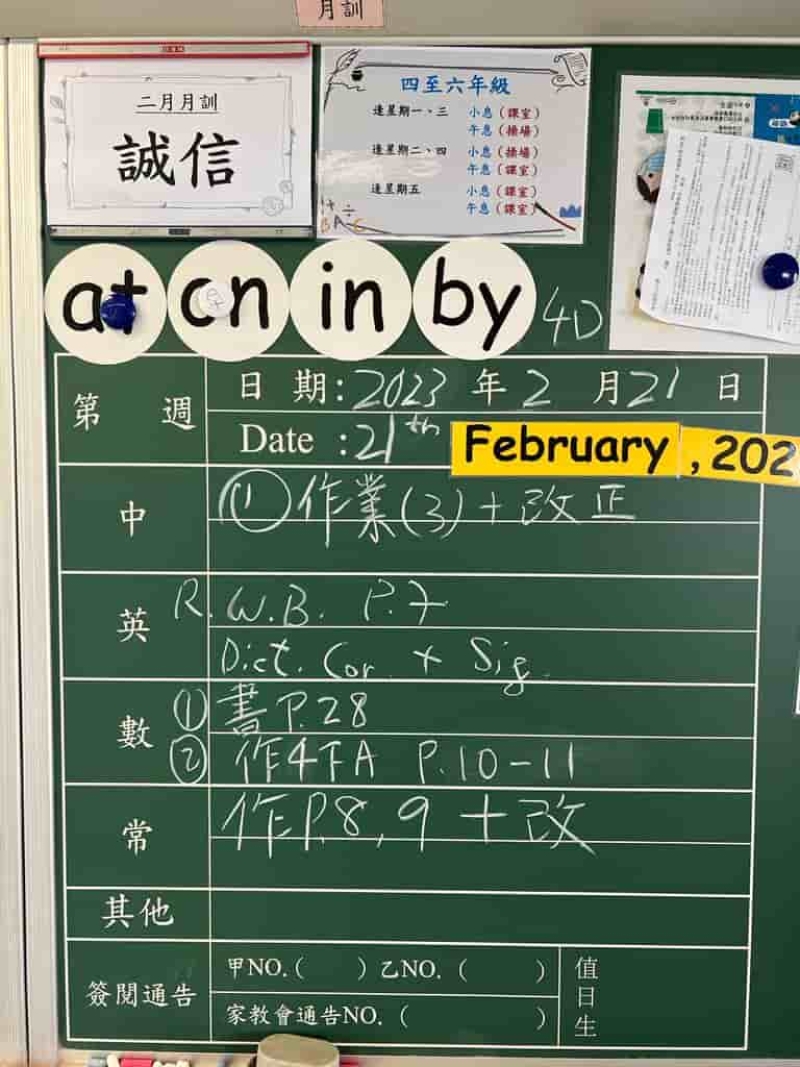 月訓
二月月訓
誠信
四至六年級
逢星期一、三 小息（課室）
午息（操場）
逢星期二、四 小息（操場）
午息（課室）
逢星期五 小息（課室）
午息（課室）
at on in by 4D
第 週
日 期:2023 年 2 月 21 日
Date :21th February , 202
中 ① 作業(3)+改正
英 R. W.B. P.7
Dict. Cor + Sig.
數 ① 書P.28
② 作4下A P.10-11
常 作P.8,9 +改
其他
簽閱通告 甲NO.( ) 乙NO. ( )
家教會通告NO. ( )
值日生